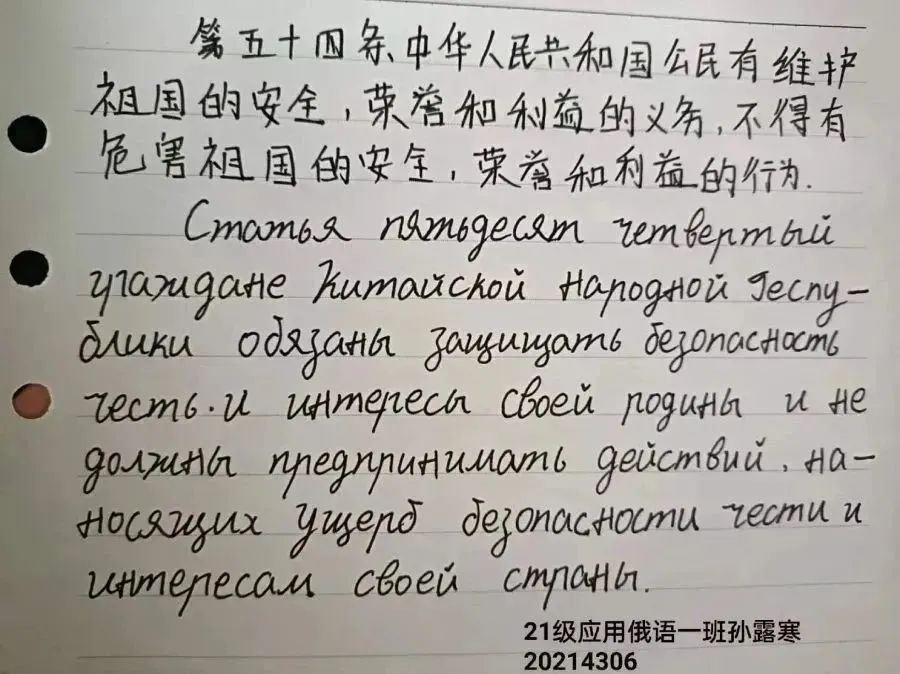 第五十四条、中华人民共和国公民有维护
祖国的安全,荣誉和利益的义务,不得有
危害祖国的安全,荣誉和利益的行为.
Статья пятьдесят четвертый
граждане Китайской Народной Респу-
блики обязаны защищать безопасность
честь. и интересы своей родины и не
должны предпринимать действий, на-
носящих ущерб безопасности чести и
интересам своей страны.
21级应用俄语一班孙露寒
20214306